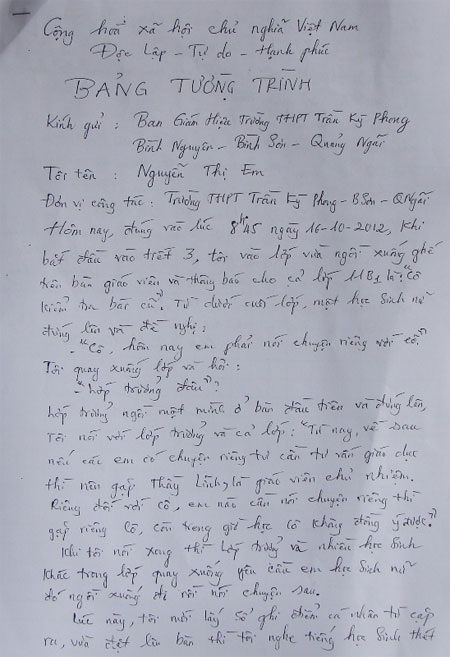 Cộng hoà xã hội chủ nghĩa Việt Nam
Độc Lập - Tự do - Hạnh phúc
BẢNG TƯỜNG TRÌNH
Kính gửi : Ban Giám Hiệu Trường THPT Trần Kỳ Phong
Bình Nguyên - Bình Sơn - Quảng Ngãi
Tôi tên : Nguyễn Thị Em
Đơn vị công tác : Trường THPT Trần Kỳ Phong - BSơn - QNgãi
Hôm nay, đúng vào lúc 8h45 ngày 16-10-2012, khi
bắt đầu vào tiết 3, tôi vào lớp vừa ngồi xuống ghế
trên bàn giáo viên và thông báo cho cả lớp 11B1 là: "Cô
kiểm tra bài cũ". Từ dưới cuối lớp, một học sinh nữ
đứng lên và đề nghị :
- "Cô, hôm nay em phải nói chuyện riêng với cô".
Tôi quay xuống lớp và hỏi :
- "Lớp trưởng đâu"?
Lớp trưởng ngồi một mình ở bàn đầu tiên và đứng lên,
Tôi nói với lớp trưởng và cả lớp : "Từ nay, về sau
nếu các em có chuyện riêng tư cần tư vấn giáo dục
thì nên gặp Thầy Linh, là giáo viên chủ nhiệm.
Riêng đối với cô, em nào cần nói chuyện riêng thì
gặp riêng cô, còn trong giờ học cô không đồng ý được".
Khi tôi nói xong thì lớp trưởng và nhiều học sinh
khác trong lớp quay xuống yêu cầu em học sinh nữ
đó ngồi xuống để rồi nói chuyện sau.
Lúc này, tôi mới lấy sổ ghi điểm cá nhân từ cặp
ra, vừa đặt lên bàn thì tôi nghe tiếng học sinh thét